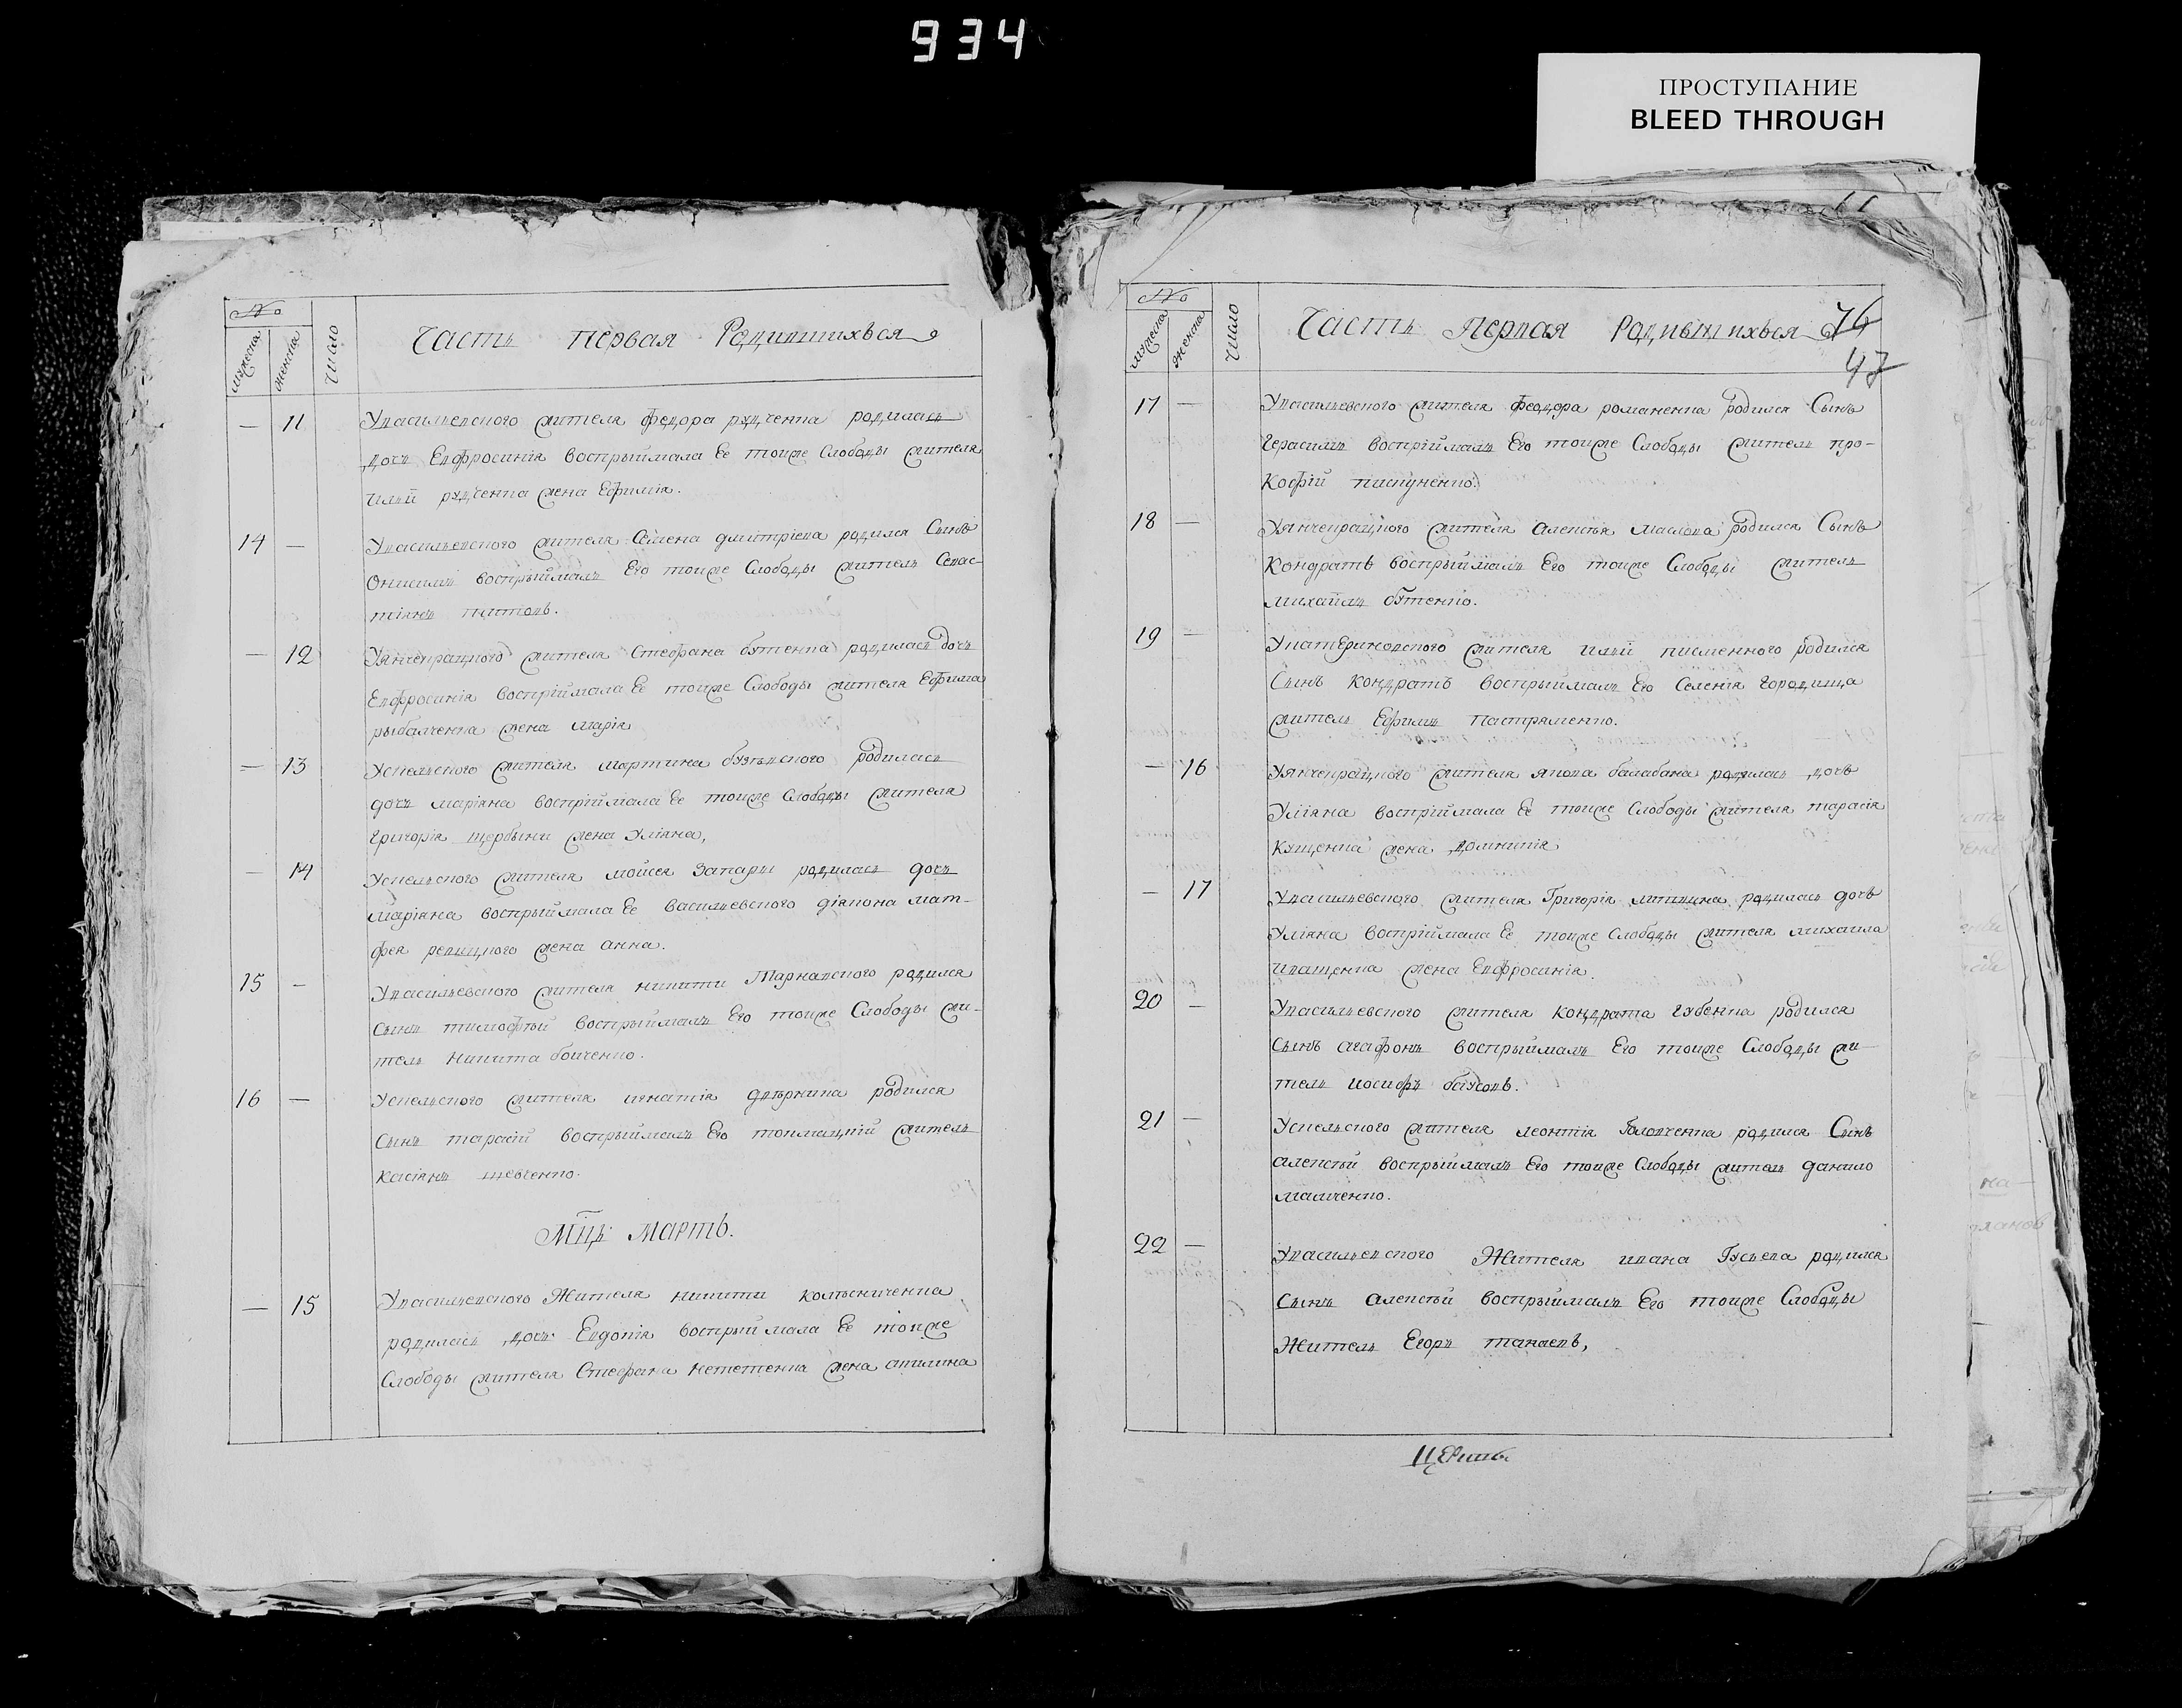 934
ПРОСТУПАНИЕ
BLEED THROUGH
№
мужеска
женска
число
Часть первая Родившихъся
— 11 Увасильевского жителя федора рудченка родилась
дочь Евфросиния восприймала Ее тоиже Слободы жителя
Илий рудченка жена Ефимия.
14 — Увасильевского жителя Семена дмитриева родился Сынъ
Онисимъ восприймалъ Его тоиже Слободы житель Севас-
тиянъ титовъ.
— 12 Уянченрацкого жителя Стефана бутенка родилась дочь
Евфросиния восприймала Ее тоиже Слободы жителя Ефима
рыбалченка жена мария
— 13 жителя мартина родилась
дочь марияна восприймала Ее тоиже Слободы жителя
григория щербыни жена Улияна,
— 14 жителя мойсея Запары родилась дочь
марияна восприймала Ее васильевского диякона мат-
фея жена анна.
15 — Увасильевского жителя никити Тарнавского родился
Сынъ тимофтей восприймалъ Его тоиже Слободы жи-
тель никита бойченко.
16 — жителя игнатия родился
Сынъ тарасий восприймалъ Его токмацкий житель
касиянъ шевченко.
Мцъ: Мартъ.
— 15 Увасильевского Жителя никити колъсниченка
родилась дочь Евдокия восприймала Ее тоиже
Слободы жителя Стефана нететенка жена акилина
76
47
№
мужеска
женска
число
Часть Первая Родившихъся
17 — Увасильевского жителя феодора романенка родился Сынъ
герасимъ восприймалъ Его тоиже Слободы житель про-
Кофий пискуненко.
18 — Уянченрацкого жителя алексея маслова родился Сынъ
Кондратъ восприймалъ Его тоиже Слободы житель
михайлъ бутенко.
19 — Укатериновского жителя Илий писменного родился
Сынъ Кондратъ восприймалъ Его Селения городища
житель Ефимъ
— 16 Уянченрацкого жителя якова балабана родилась дочь
Улияна восприймала Ее тоиже Слободы жителя тарасия
Кущенка жена домникия
— 17 Увасильевского жителя Григория родилась дочь
Улияна восприймала Ее тоиже Слободы жителя михаила
Иващенка жена Евфросиния.
20 — Увасильевского жителя Кондрата губенка родился
Сынъ агафонъ восприймалъ Его тоиже Слободы жи-
тель Иосифъ баусовъ.
21 — жителя леонтия Головченка родился Сынъ
алексей восприймалъ Его тоиже Слободы житель данило
малченко.
22 — Увасильевского Жителя ивана Гусьева родился
Сынъ алексей восприймалъ Его тоиже Слободы
Житель Егоръ танаевъ,